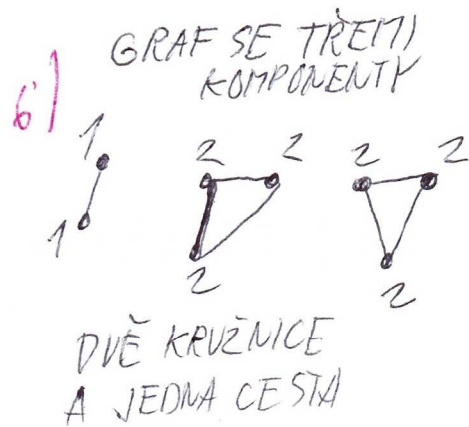 GRAF SE TŘEMI
KOMPONENTY
6)
1
1
2 2
2
2 2
2
DVĚ KRUŽNICE
A JEDNA CESTA